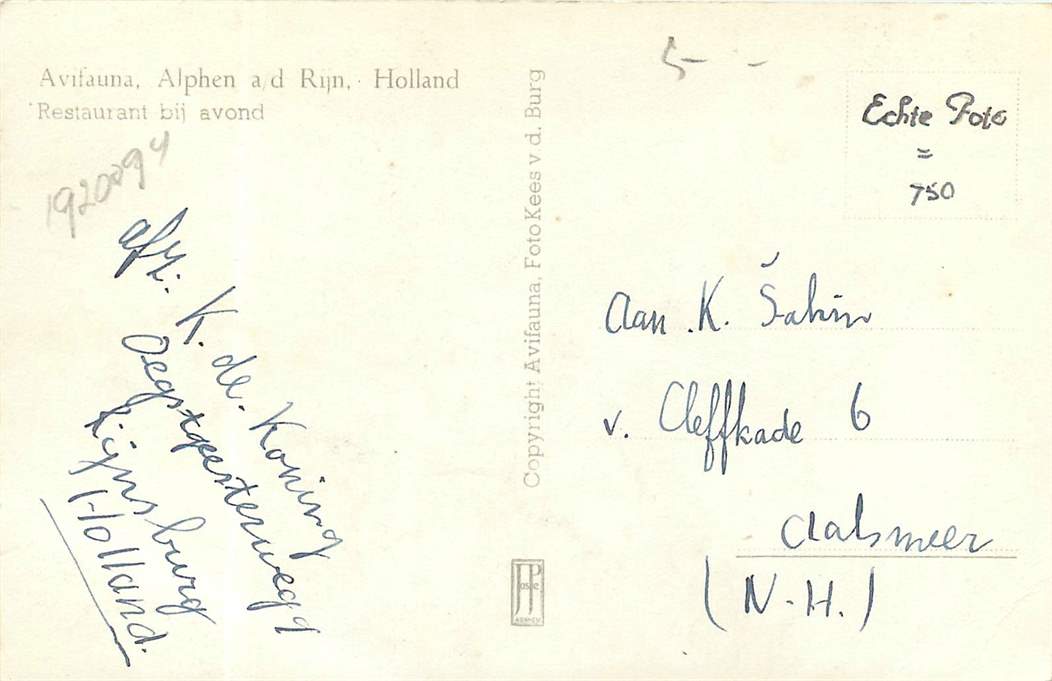 Avifauna, Alphen a/d Rijn, · Holland
Restaurant bij avond
1920094
afz. K. de. Koning
Oegstgeesterweg 9
Rijnsburg
Holland.
Copyright Avifauna, Foto Kees v d. Burg
JosPé
ARNHEM
5- -
Echte Foto
=
750
Aan . K. Šahin
v. Cleffkade 6
Aalsmeer
(N.H.)